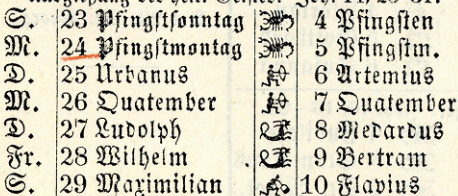 S. 23 Pfingstsonntag 4 Pfingsten
M. 24 Pfingstmontag 5 Pfingstm.
D. 25 Urbanus 6 Artemius
M. 26 Quatember 7 Quatember
D. 27 Ludolph 8 Medardus
Fr. 28 Wilhelm 9 Bertram
S. 29 Maximilian 10 Flavius